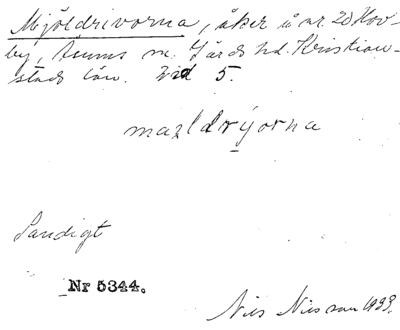 Mjöldrivorna, åker å nr 20 Hov-
by, Åhus sn. Gärds hd. Kristian-
stads län. 5.
mazldrýorna
Sandigt
Nr 5344.
Nils Nilsson 1933.